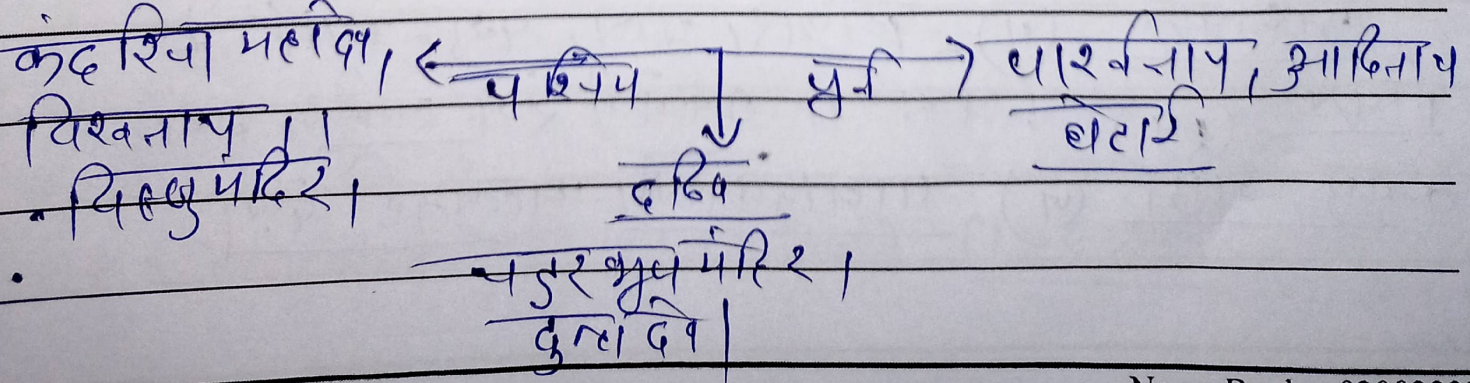 कंदरिया महादेव, ← पश्चिम ↓ पूर्व → पार्श्वनाथ, आदिनाथ
विश्वनाथ ।। घंटाई
• विष्णु मंदिर । दक्षिण
• चतुर्भुज मंदिर ।
दुल्हादेव |